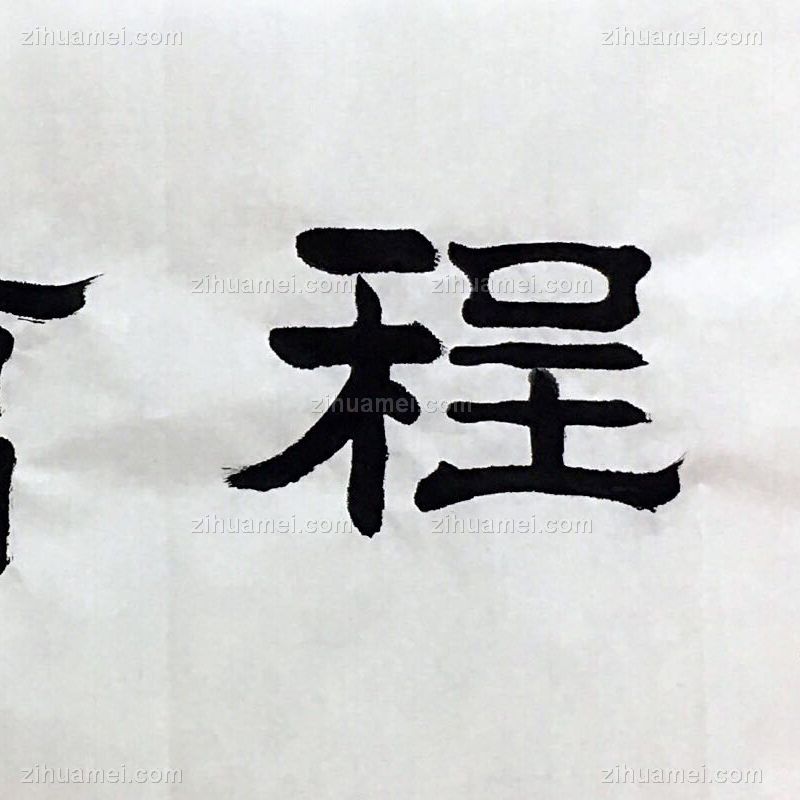 程
zihuamei.com zihuamei.com
zihuamei.com zihuamei.com
zihuamei.com
zihuamei.com zihuamei.com
zihuamei.com zihuamei.com